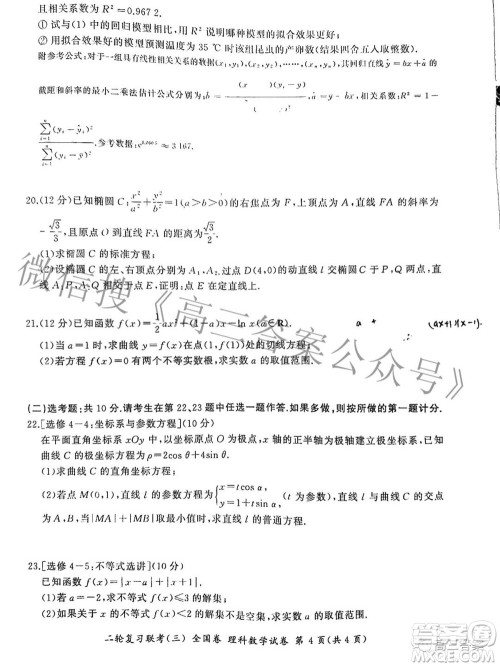 且相关系数为 R²=0.967 2.
①试与(1)中的回归模型相比,用 R² 说明哪种模型的拟合效果更好;
②用拟合效果好的模型预测温度为 35 ℃时该组昆虫的产卵数(结果四舍五入取整数).
附参考公式:对于一组具有线性相关关系的数据(x₁,y₁),(x₂,y₂),…(xₙ,yₙ),其回归直线 ŷ=b̂x+â 的
截距和斜率的最小二乘法估计公式分别为,b̂= ( )(yᵢ-ȳ) ,â=ȳ-b̂x̄,相关系数:R²=1-
∑(yᵢ-ŷᵢ)²/∑(yᵢ-ȳ)².参考数据: ≈3 167.
20.(12分)已知椭圆 C:x²/a²+y²/b²=1(a>b>0)的右焦点为 F,上顶点为 A,直线 FA 的斜率为
-√3/3,且原点 O 到直线 FA 的距离为√3/2.
(1)求椭圆 C 的标准方程;
(2)若椭圆 C 的左、右顶点分别为 A₁、A₂,过点 D(4,0)的动直线 l 与椭圆 C 于 P,Q 两点,直
线 A₁P,A₂Q 的交点为 M,证明:点 M 在定直线上.
21.(12分)已知函数 f(x)=1/2ax²+(1-a)x-ln x(a∈R). a + (ax+1)(x-1).
(1)当 a=1 时,求曲线 f(x)在点(1,f(1))处的切线方程;
(2)若函数 f(x)有两个不等实数根,求实数 a 的取值范围.
(二)选考题:共 10 分.请考生在第 22、23 题中任选一题作答.如果多做,则按所做的第一题计分.
22.[选修 4-4:坐标系与参数方程](10分)
在平面直角坐标系 xOy 中,以坐标原点 O 为极点,x 轴的正半轴为极轴建立极坐标系,已知
曲线 C 的极坐标方程为 ρ=2cos θ+2sin θ.
(1)求曲线 C 的直角坐标方程;
(2)若点 M(0,1),直线 l 的参数方程为{x=tcos α, y=1+tsin α (t 为参数),且直线 l 与曲线 C 的交点分别为
A,B,当|MA|+|MB|取最小值时,求直线 l 的普通方程.
23.[选修 4-5:不等式选讲](10分)
已知函数 f(x)=|x-1|+|x-2|.
(1)求不等式 f(x)≤3 的解集;
(2)若不等式 f(x)≥|a|(x+1)的解集为 R,求实数 a 的取值范围.
二轮复习联考(三) 全国卷 理科数学试卷 第 4 页(共 4 页)
微信搜《高三答案公众号》